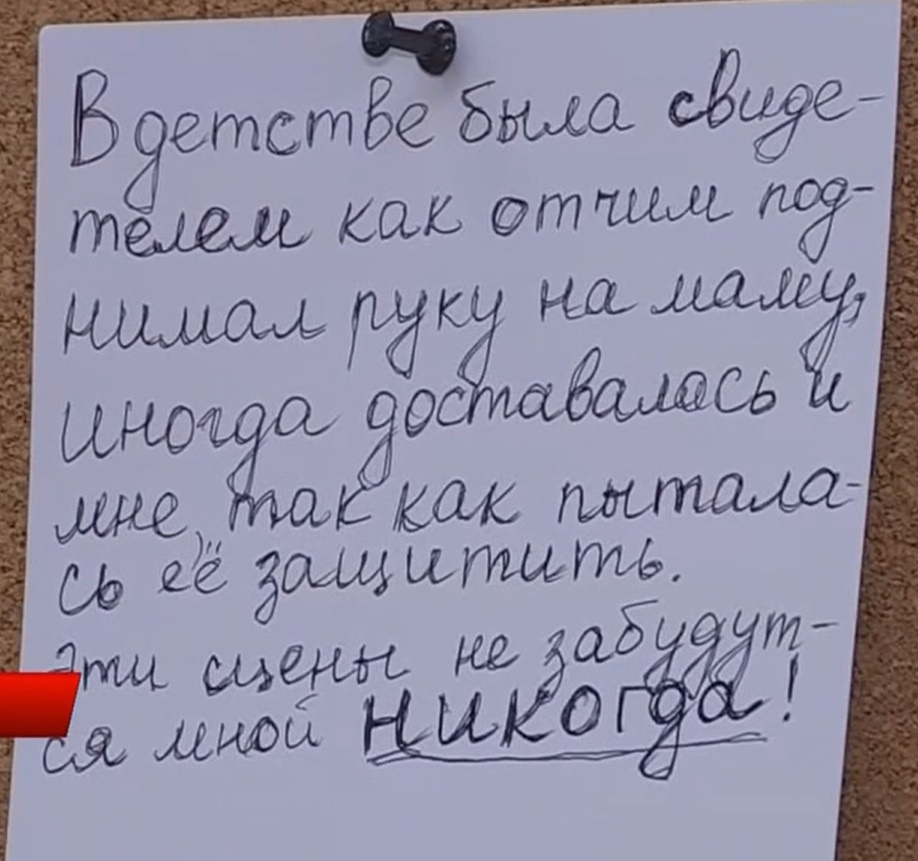 В детстве была свиде-
телем как отчим под-
нимал руку на маму,
иногда доставалось и
мне, так как пытала-
сь её защитить.
Эти сцены не забудут-
ся мной никогда!